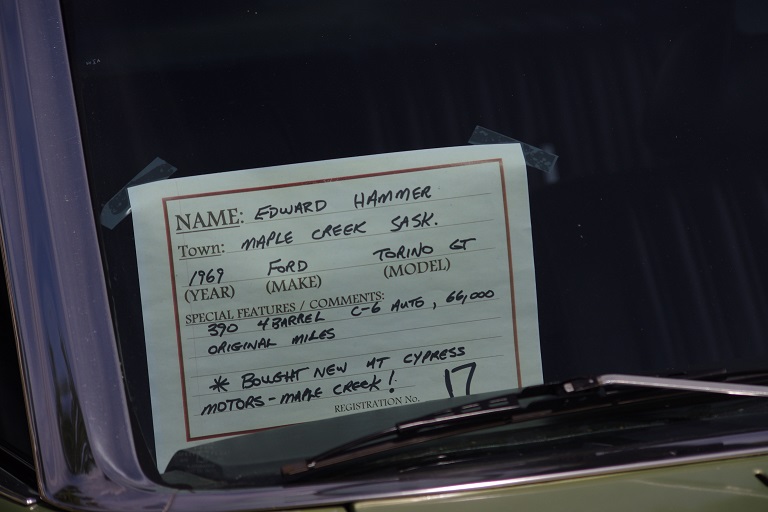 NAME: EDWARD HAMMER
Town: MAPLE CREEK SASK.
1969 FORD TORINO GT
(YEAR) (MAKE) (MODEL)
SPECIAL FEATURES / COMMENTS:
390 4 BARREL C-6 AUTO, 66,000
ORIGINAL MILES
* BOUGHT NEW AT CYPRESS
MOTORS - MAPLE CREEK!
REGISTRATION No. 17